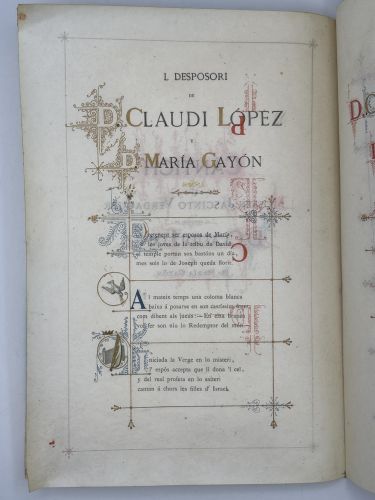 L DESPOSORI
DE
D. CLAUDI LÓPEZ
Y
D. MARÍA GAYÓN
ser esposos de María,
los joves de la tribu de David
al temple portan sos bastóns un día,
mes sols lo de Joseph queda florit.
Al mateix temps una coloma blanca
baixa á posarse en son
com dihent als jueus: — En eixa branca
vol fer son niu lo Redemptor del món.
Iniciada la Verge en lo misteri,
espós accepta que li dona 'l cel,
y del real profeta en lo salteri
cantan á chors les filles d' Israel.